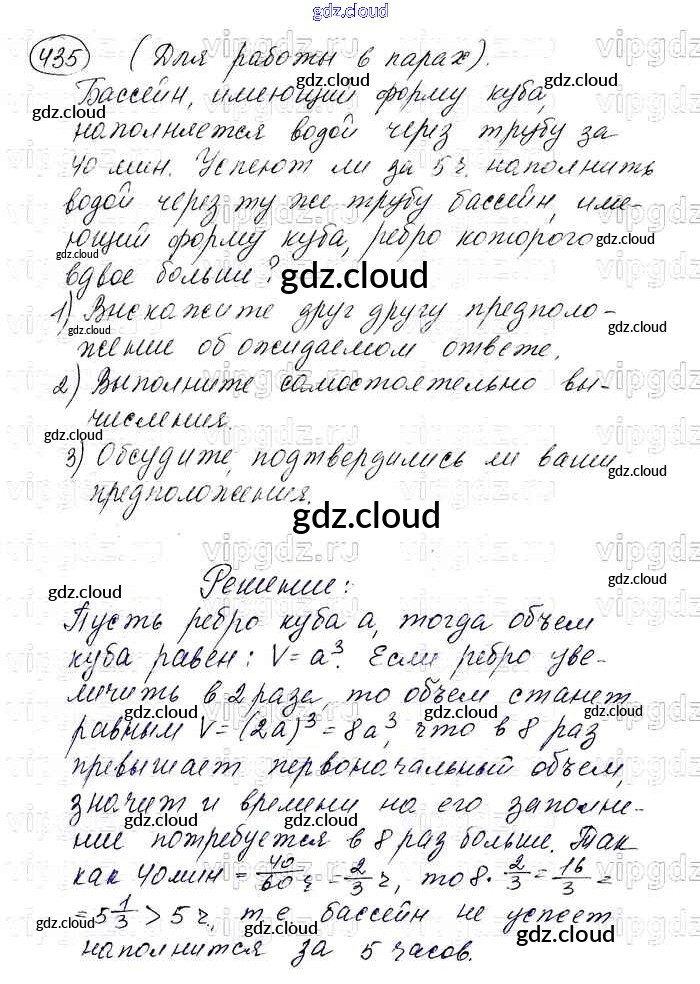 gdz.cloud
435 (Для работы в парах).
Бассейн, имеющий форму куба,
наполняется водой через трубу за
40 мин. Успеют ли за 5 ч. наполнить
водой через ту же трубу бассейн, име-
ющий форму куба, ребро которого
вдвое больше?
gdz.cloud
1) Выскажите друг другу предполо-
жение об ожидаемом ответе.
2) Выполните самостоятельно вы-
числения.
3) Обсудите, подтвердились ли ваши
предположения.
gdz.cloud
Решение:
Пусть ребро куба a, тогда объем
куба равен: V=a³. Если ребро уве-
личить в 2 раза, то объем станет
равным V=(2a)³=8a³, что в 8 раз
превышает первоначальный объем,
значит и времени на его заполне-
ние потребуется в 8 раз больше. Так
как 40мин = 40/60 ч = 2/3 ч, то 8·2/3 = 16/3 =
= 5 1/3 > 5 ч., т.е. бассейн не успеет
наполнится за 5 часов.